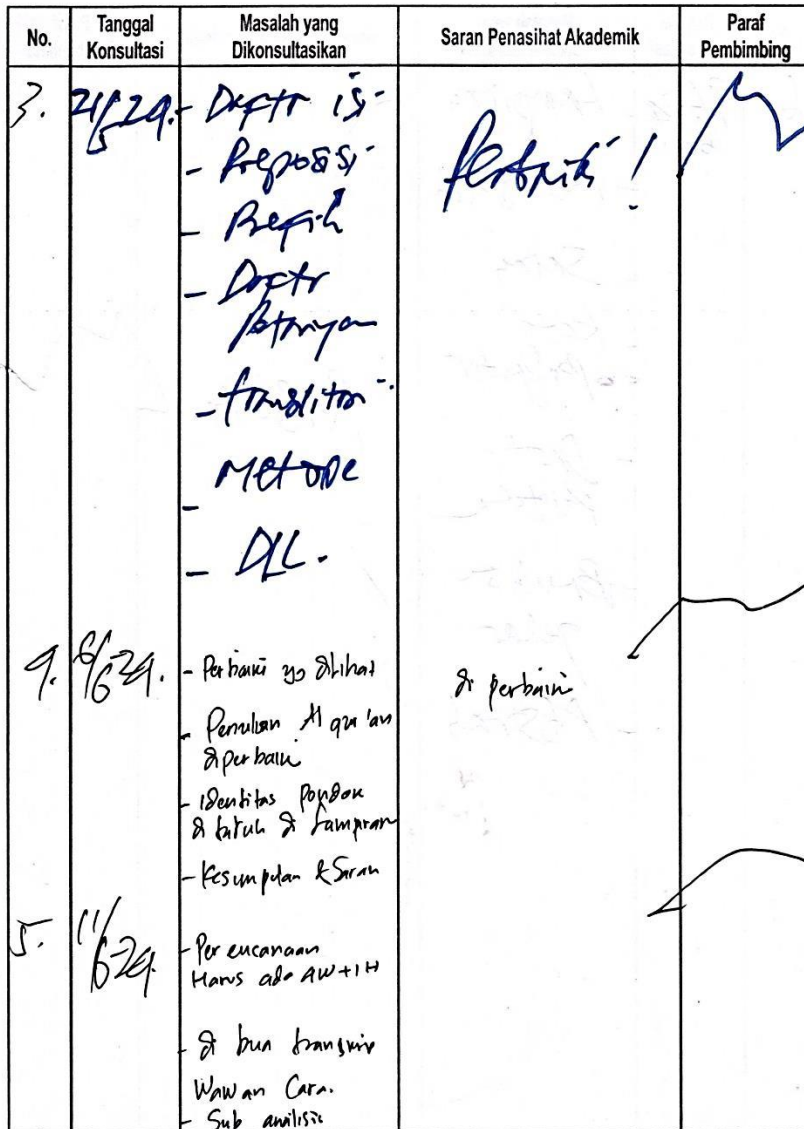 No.
Tanggal Konsultasi
Masalah yang Dikonsultasikan
Saran Penasihat Akademik
Paraf Pembimbing
3.
21/5 24.
- Daftr isi
Perbaiki !
-
-
- Daftr
- Translitrasi
- Metode
- DLL.
4.
6/6-24.
- Perbaiki yg dilihat
di perbaiki
- Penulisan Al qur'an
diperbaiki
- Identitas Pondok
di taruh di lampiran
- Kesimpulan & Saran
5.
11/6-24.
- Perencanaan
Harus ada 4W+1H
- di buat transkrip
Wawan Cara.
- Sub analisis